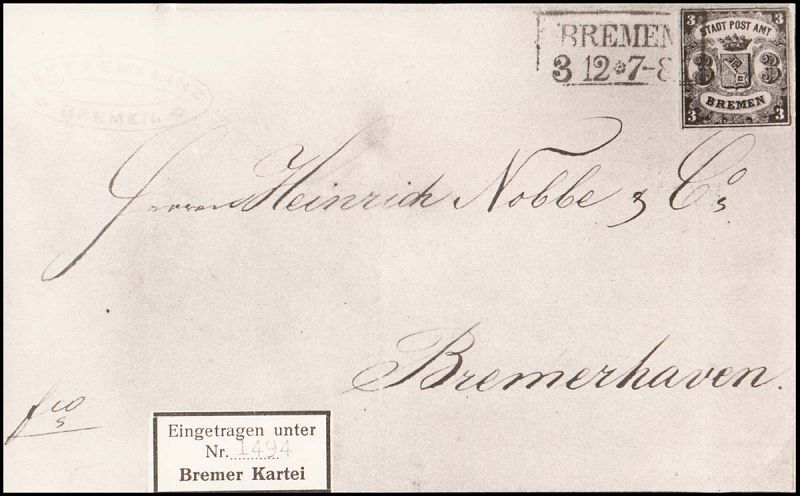 BREMEN
3 12 * 7-8
3 3
STADT POST AMT
3 3
BREMEN
3 3
BREMEN
Herren Heinrich Nobbe & Cos
Bremerhaven.
fco
Eingetragen unter
Nr. 1494
Bremer Kartei